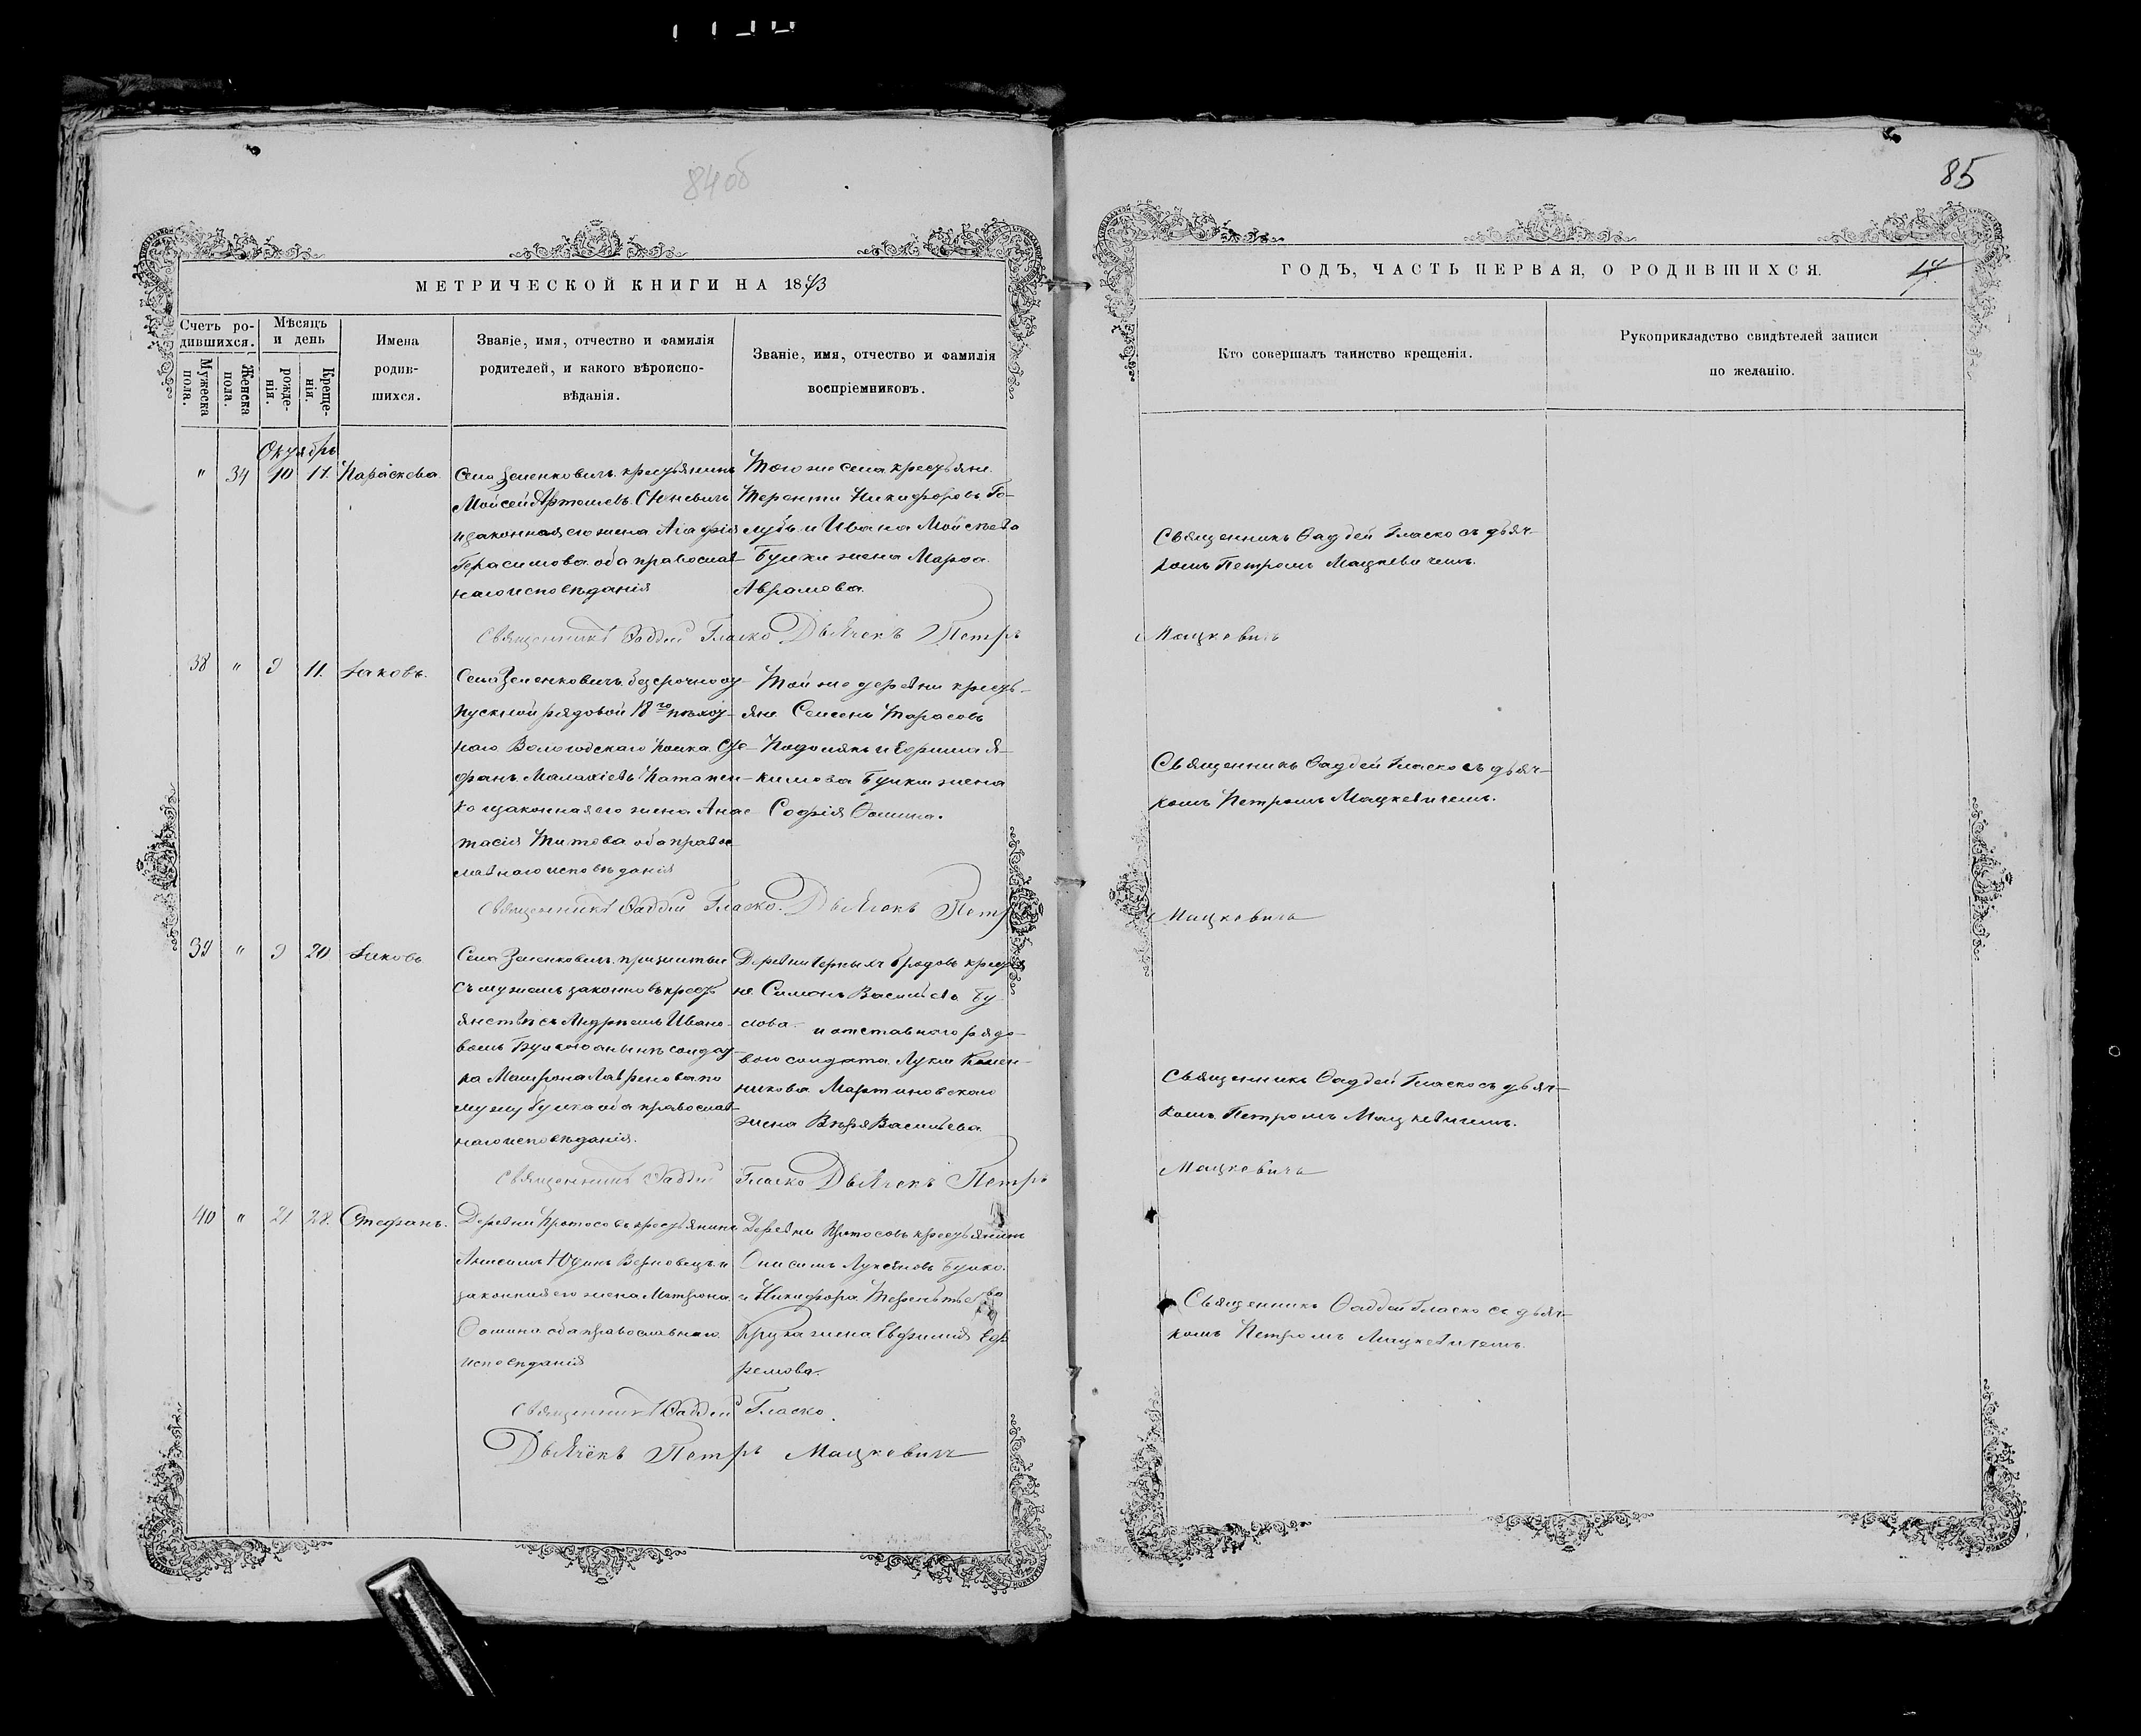 84об
85
МЕТРИЧЕСКОЙ КНИГИ НА 1873
ГОДЪ, ЧАСТЬ ПЕРВАЯ, О РОДИВШИХСЯ.
Счетъ ро-
дившихся.
Мужеска пола.
Женска пола.
Мѣсяцъ
и день
рожде-
нія.
Креще-
нія.
Имена
родив-
шихся.
Званіе, имя, отчество и фамилія
родителей, и какого вѣроиспо-
вѣданія.
Званіе, имя, отчество и фамилія
воспріемниковъ.
Кто совершалъ таинство крещенія.
Рукоприкладство свидѣтелей записи
по желанію.
Октябрь
" 34 10 11. Параскева
Села Зеленковичъ крестьянинъ
Мойсей
и законная его жена Агафія
Герасимова оба православ-
наго исповѣданія
Того же села крестьяне.
Терентій Никифоровъ Го-
лубь и Ивана Мойсѣева
Булки жена Марѳа
Аврамова.
Священникъ Ѳаддей Гласко съ дьяч-
комъ Петромъ Мацкевичемъ.
Священникъ Ѳаддей Гласко Дьячекъ Петръ
Мацкевичъ
38 " 9 11. Іаковъ.
Села Зеленковичъ безсрочноот-
пускной рядовой 18го пѣхот-
наго Вологодскаго полка Сте-
фанъ Малахіевъ Потапен-
ко и законная его жена Анас-
тасія Титова оба правос
лавнаго исповѣданія
Той же деревни кресть-
яне Семенъ Тарасовъ
и Ефима Я-
кимова Булки жена
Софія Ѳомина.
Священникъ Ѳаддей Гласко съ дьяч-
комъ Петромъ Мацкевичемъ.
Священникъ Ѳаддей Гласко. Дьячекъ Петръ
Мацкевичъ
39 " 9 20 Іаковъ
Села Зеленковичъ прижитый
съ мужемъ законно въ кресть
янствѣ съ Андреемъ Ивано-
вомъ Булкою а нынѣ солдат-
ка Матрона Лавренова по
мужу Булка оба православ-
наго исповѣданія.
Деревни Черныхъ бродовъ крестья
не Симонъ Васильевъ Бу-
слова и отставнаго рядо-
вого солдата Луки
никова Мартиновскаго
жена Вѣра Васильева
Священникъ Ѳаддей Гласко съ дьяч-
комъ Петромъ Мацкевичемъ.
Священникъ Ѳаддей Гласко Дьячекъ Петръ
Мацкевичъ
40 " 21 28. Стефанъ.
Деревни Протосовъ крестьянинъ
Анисимъ Юдинъ Верповецъ и
законная его жена Матрона
Ѳомина оба православнаго
исповѣданія
Деревни Протосовъ крестьянинъ
Онисимъ Лукьяновъ Булко
и Никифора Терентьева
Крука жена Евфимія Еф
ремова.
Священникъ Ѳаддей Гласко съ дьяч-
комъ Петромъ Мацкевичемъ.
Священникъ Ѳаддей Гласко.
Дьячекъ Петръ Мацкевичъ